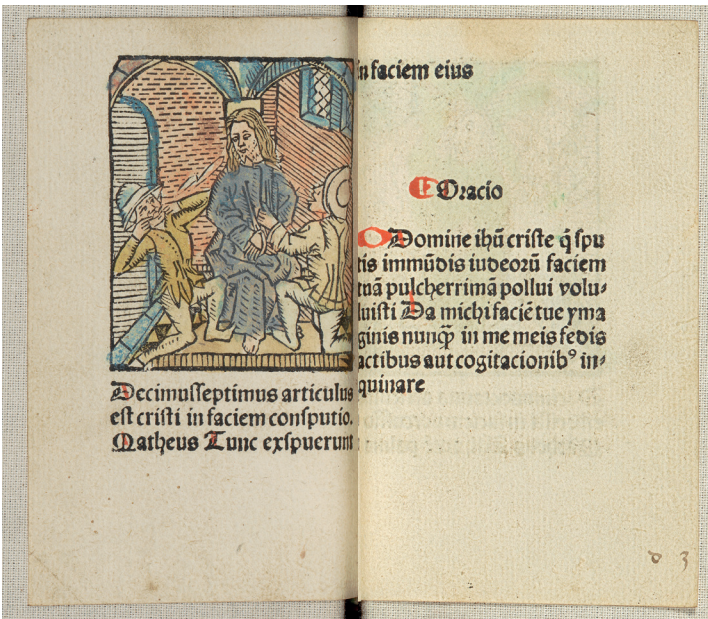 Decimusſeptimus articulus
eſt criſti in faciem conſputio.
Matheus Tunc exſpuerunt
in faciem eius
Oracio
O Domine ihū criſte q̄ ſpu
tis immūdis iudeorū faciem
tuā pulcherrimā pollui volu-
luiſti Da michi faciē tue yma
ginis nunqꝫ in me meis fedis
actibus aut cogitacionibꝰ in-
quinare
d 3